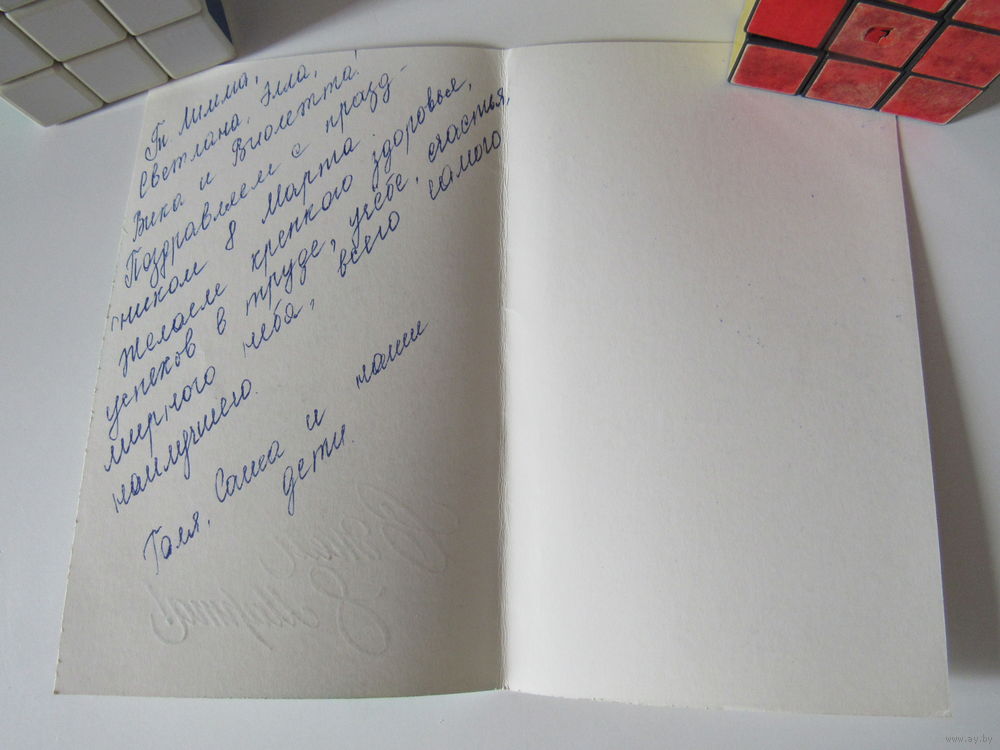 Т. Римма,
Светлана, Элла,
Вика и Виолетта!
Поздравляем с празд-
ником 8 Марта.
Желаем крепкого здоровья,
успехов в труде, учёбе, счастья,
мирного неба, всего самого
наилучшего.
Галя, Саша и наши
дети.
8 Марта
www.ay.by